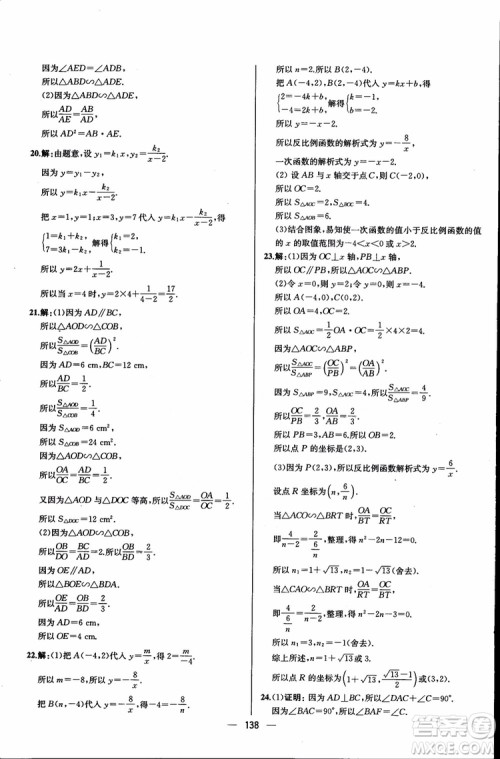 因为∠AED=∠ADB,
所以△ABD∽△ADE.
(2)因为△ABD∽△ADE,
所以AD/AE=AB/AD.
所以 AD²=AB·AE.
20.解:由题意,设 y₁=k₁x,y₂=k₂/(x-2).
因为 y=y₁-y₂,
所以 y=k₁x-k₂/(x-2).
把 x=1,y=1;x=3,y=7 代入 y=k₁x-k₂/(x-2),得
{1=k₁+k₂, 7=3k₁-k₂. 解得{k₁=2, k₂=-1.
所以 y=2x+1/(x-2).
所以当 x=4 时,y=2×4+1/(4-2)=17/2.
21.解:(1)因为 AD∥BC,
所以△AOD∽△COB.
所以S△AOD/S△COB=(AD/BC)².
因为 AD=6 cm,BC=12 cm,
所以AD/BC=1/2.
所以S△AOD/S△COB=1/4.
因为 S△AOD=6 cm²,
所以 S△BOC=24 cm².
因为△AOD∽△COB,
所以OA/OC=AD/BC=1/2.
又因为△AOD 与△DOC 等高,所以S△AOD/S△DOC=OA/OC=1/2.
所以 S△DOC=12 cm².
(2)所以OB/DO=BC/AD=2/1.所以OB/BD=2/3.
因为 OE∥AD,
所以△BOE∽△BDA.
所以OE/AD=OB/BD=2/3.
因为 AD=6 cm,
所以 OE=4 cm.
22.解:(1)把 A(-4,2)代入 y=m/x,得 2=m/-4.
所以 m=-8,所以 y=-8/x.
把 B(n,-4)代入 y=-8/x,得-4=-8/n.
所以 n=2.所以 B(2,-4).
把 A(-4,2),B(2,-4)代入 y=kx+b,得
{2=-4k+b, -4=2k+b. 解得{k=-1, b=-2.
所以反比例函数的解析式为 y=-8/x,
一次函数的解析式为 y=-x-2.
(2)设 AB 与 x 轴交于点 C,所以 C(-2,0).
所以 S△AOB=S△AOC+S△BOC=2+4=6.
(3)结合图象,易知使一次函数的值小于反比例函数的值的 x 的取值范围为-4<x<0 或 x>2.
23.解:(1)因为 OC⊥x 轴,PB⊥x 轴,
所以 OC∥PB.所以△AOC∽△ABP.
(2)令 x=0,则 y=2;令 y=0,则 x=-4.
所以 OA=4,OC=2.
所以 S△AOC=1/2OA·OC=1/2×4×2=4.
因为△AOC∽△ABP,
所以S△AOC/S△ABP=(OC/PB)²=(OA/AB)².所以S△AOC/S△ABP=4/9.
所以OC/PB=OA/AB=2/3.
所以 PB=3,AB=6.所以 OB=2.
所以点 P 的坐标是(2,3).
(3)因为 P(2,3),所以反比例函数解析式为 y=6/x.
设点 R 坐标为(n,6/n).
当△ACO∽△BRT 时,AO/BT=CO/RT.
即4/(n-2)=2/(6/n),整理,得 n²-2n-12=0.
所以 n₁=1+√13,n₂=1-√13(舍去).
当△CAO∽△BRT 时,CO/BT=AO/RT.
即2/(n-2)=4/(6/n),整理,得 n²-2n-3=0.
所以 n₁=3,n₂=-1(舍去).
综上所述,R(1+√13,(√13-1)/2)或(3,2).
24.(1)证明:因为 AD⊥BC,所以∠DAC+∠C=90°.
因为∠BAC=90°,所以∠BAF+∠DAC=90°.
138